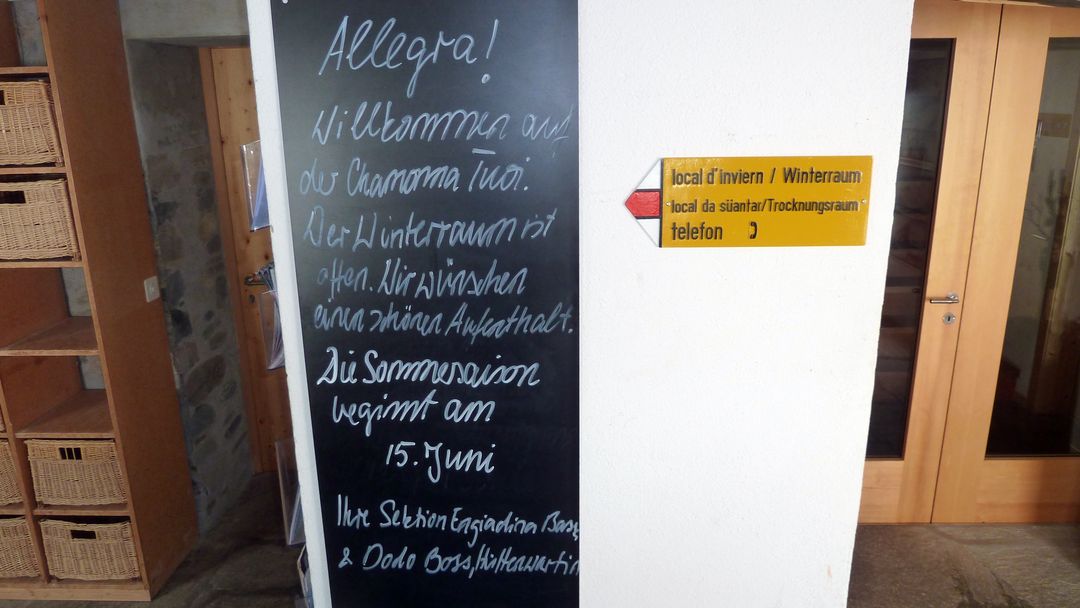 Allegra!
Willkommen auf
der Chamonna Tuoi.
Der Winterraum ist
offen. Wir wünschen
einen schönen Aufenthalt.
Die Sommersaison
beginnt am
15. Juni
Ihre Sektion Engiadina Bassa
& Dodo Boss, Hüttenwartin
local d'inviern / Winterraum
local da süantar/Trocknungsraum
telefon